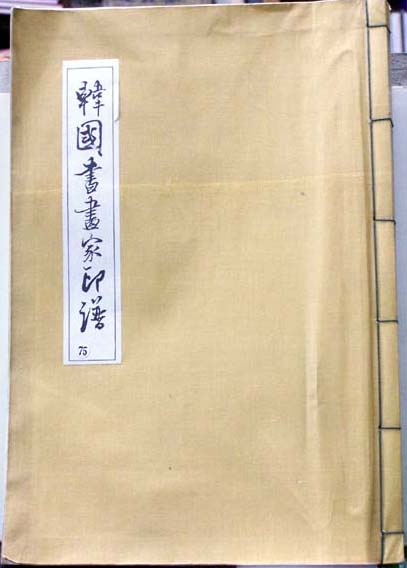 韓國書畫家印譜
75